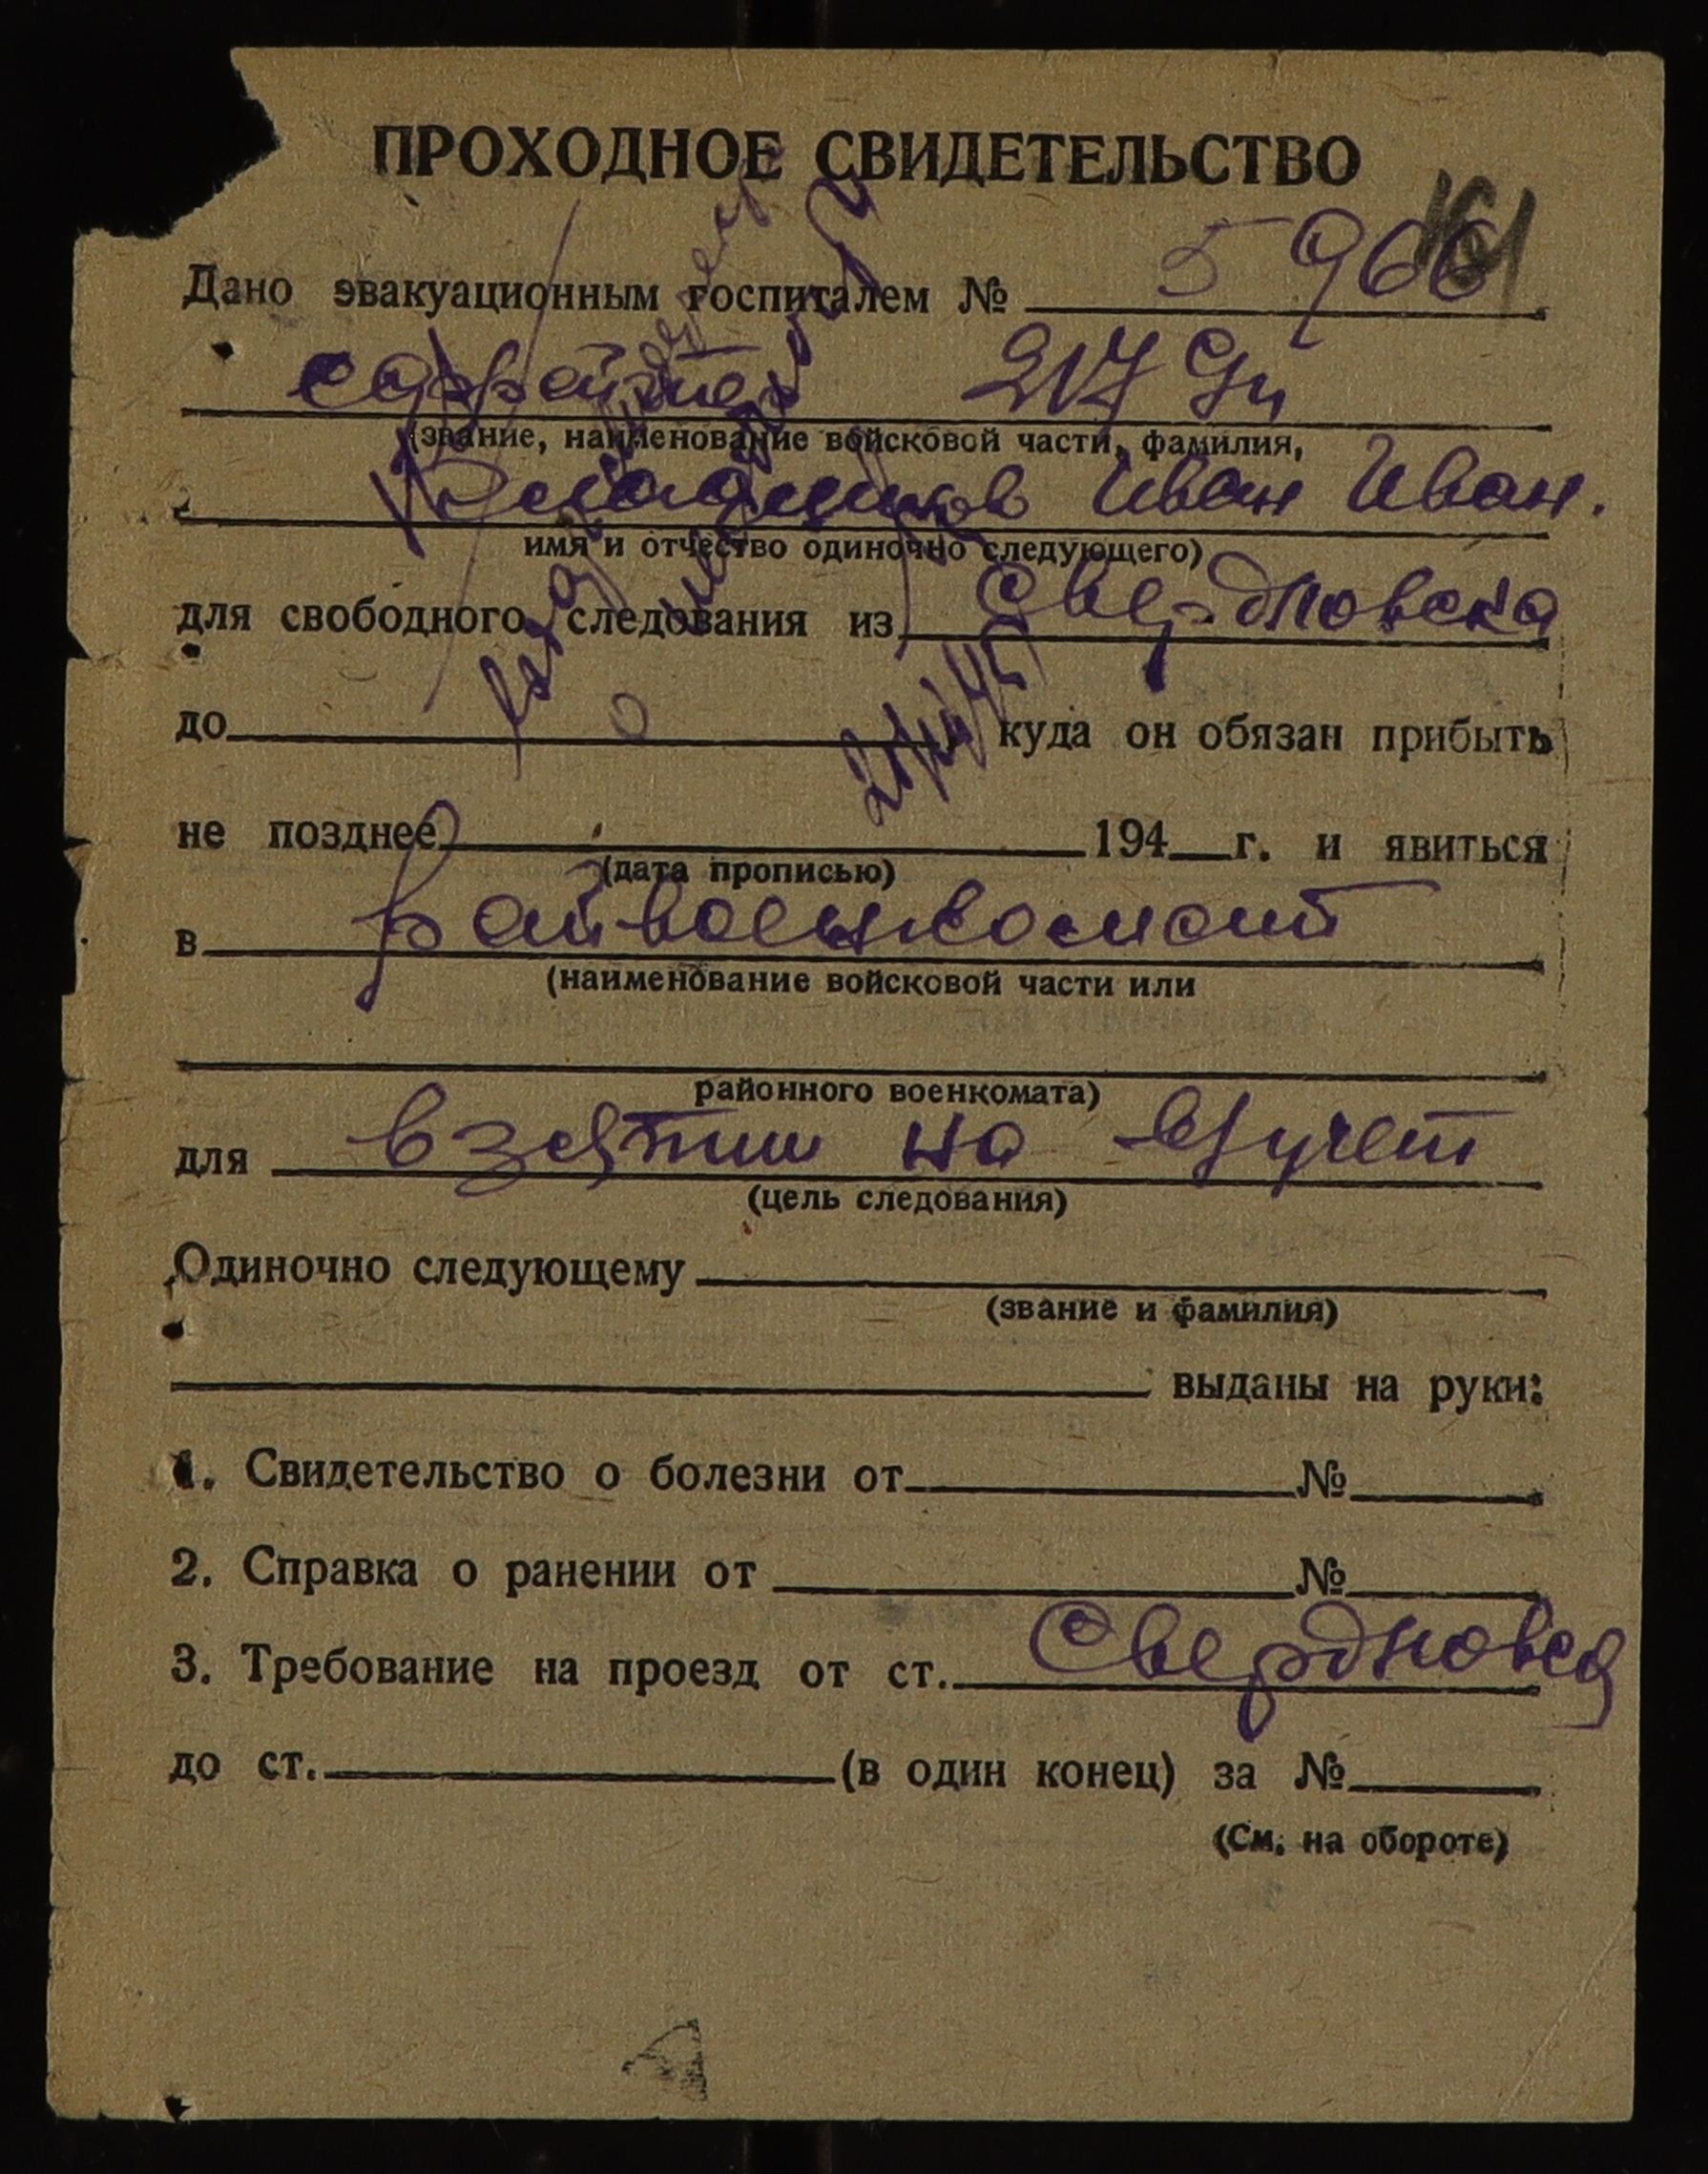 ПРОХОДНОЕ СВИДЕТЕЛЬСТВО
Дано эвакуационным госпиталем № 5966
ефрейтор 217 Сп
(звание, наименование войсковой части, фамилия,
Иван Иван.
имя и отчество одиночно следующего)
для свободного следования из Свердловска
до куда он обязан прибыть
не позднее 194 г. и явиться
(дата прописью)
в Райвоенкомат
(наименование войсковой части или
районного военкомата)
для взятии на учет
(цель следования)
Одиночно следующему
(звание и фамилия)
выданы на руки:
1. Свидетельство о болезни от №
2. Справка о ранении от №
3. Требование на проезд от ст. Свердловск
до ст. (в один конец) за №
(См. на обороте)